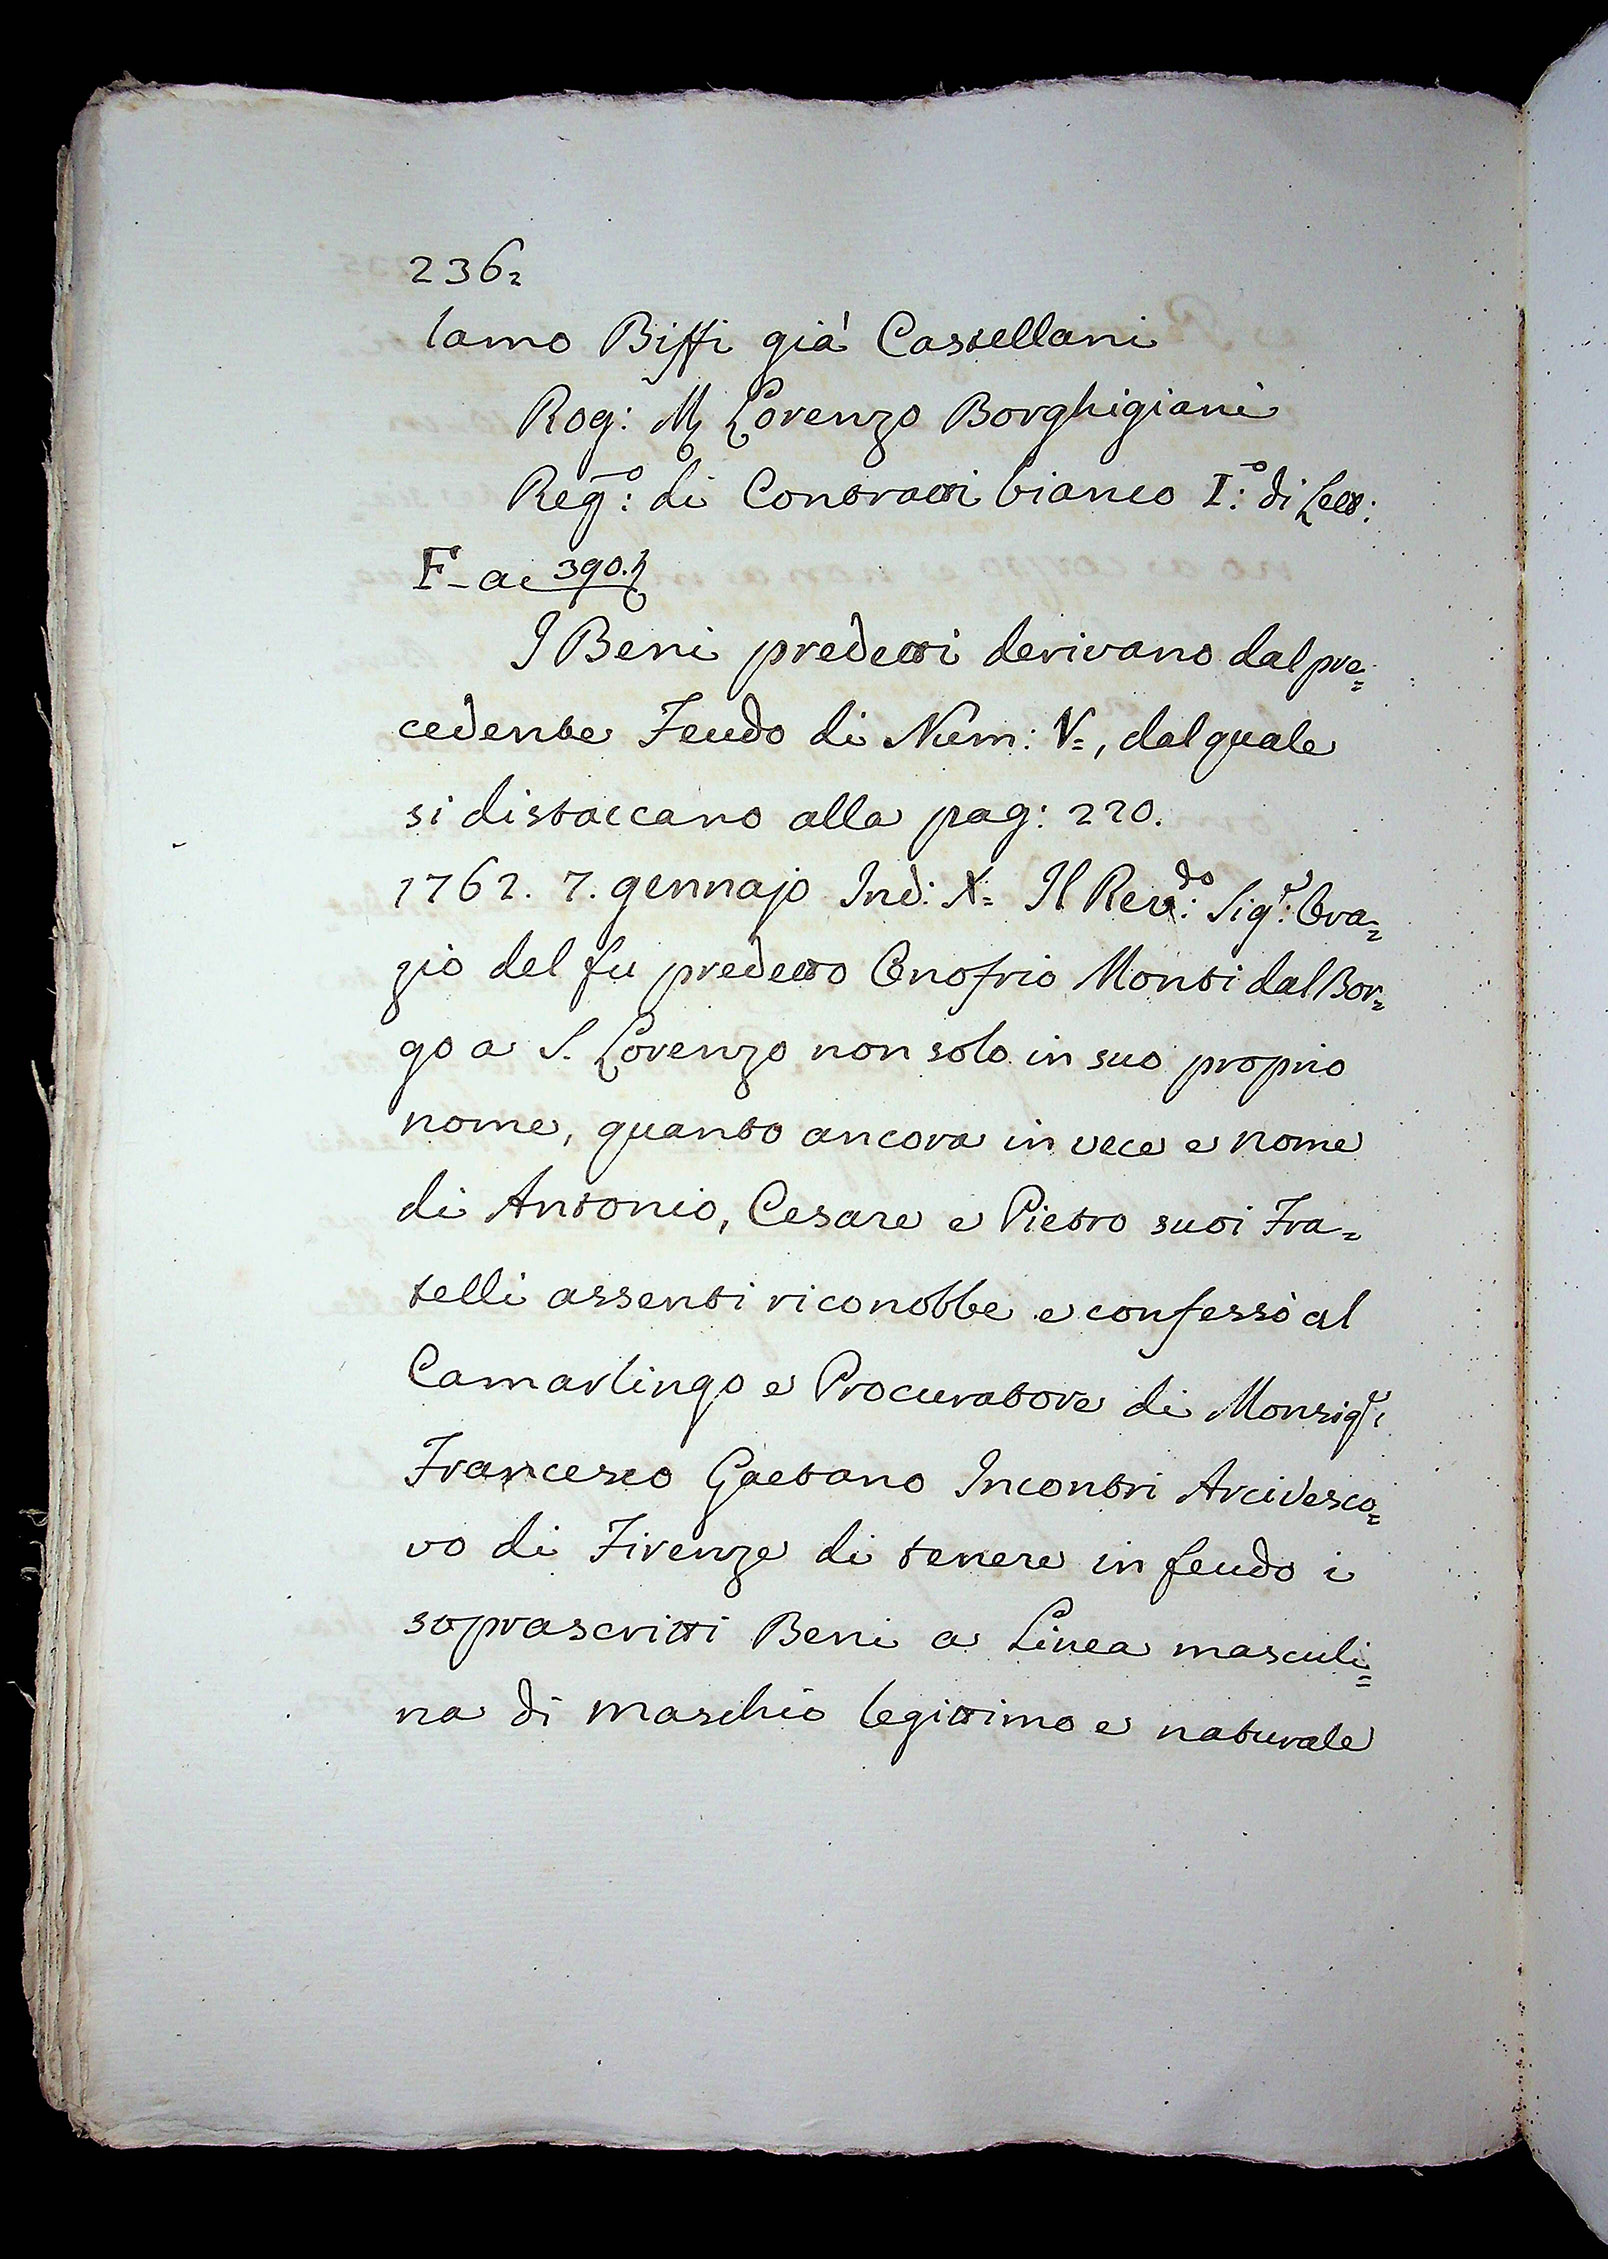 236=
lamo Biffi già Castellani
Rog: M Lorenzo Borghigiani
Reg:º di Contratti bianco I:º di Lett:
F– a c 390.
I Beni predetti derivano dal pre=
cedente Feudo di Num: V=, dal quale
si distaccano alla pag: 220.
1762. 7. gennajo Ind: X= Il Rev:do Sig:r Ora=
zio del fu predetto Onofrio Monti dal Bor=
go a S. Lorenzo non solo in suo proprio
nome, quanto ancora in vece e nome
di Antonio, Cesare e Pietro suoi Fra=
telli assenti riconobbe e confessò al
Camarlingo e Procuratore di Monsig:r
Francesco Gaetano Incontri Arcivesco=
vo di Firenze di tenere in feudo i
soprascritti Beni a Linea masculi=
na di maschio legittimo e naturale